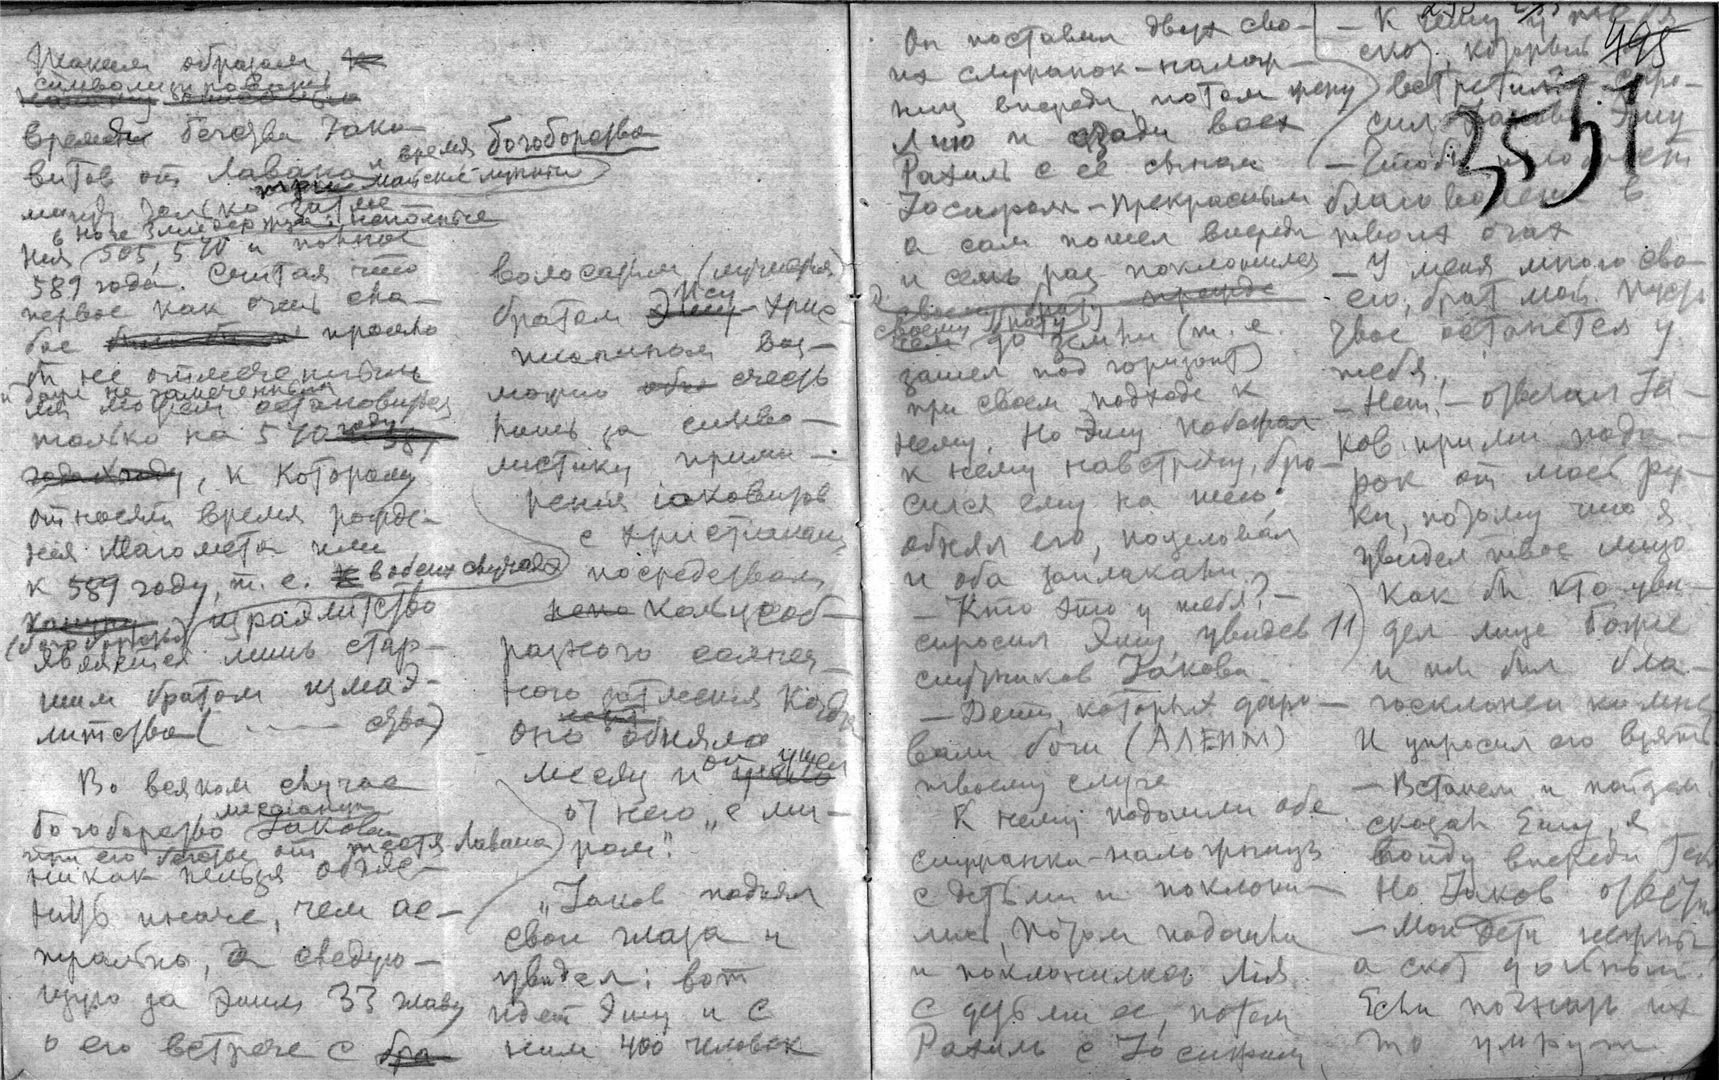 Таким образом
символизировать
времени бегства Иако-
витов от Лавана и время богоборства
между только затме-
в ноче Змиедержца: неполные
ния 505, 570 и полное
589 года. Считая что
первое как очень сла-
бое прошло
бы не отмеченным
и даже не замеченным
мы можем остановиться
только на 570 году
, к которому
относят время рожде-
ния Магомета или
к 589 году, т. е. в обеих случаях
(богоборство) израэлитство
является лишь стар-
шим братом измаэ-
литства
Во всяком случае
богоборство Иакова
при его бегстве от тестя Лавана
никак нельзя объяс-
нить иначе, чем ас-
трально, а следую-
щую за этим 33 главу
о его встрече с бра-
волосатым (мученья)
братом Эшу Ису - хрис-
тианином воз-
можно счесть
лишь за симво-
листику прими-
рения іаковитов
с христіанами
посредством
кольцеоб-
разного солнеч-
ного затмения когда
оно обняло
месяц и он ушел
от него „с ми-
ром“.
„Иаков поднял
свои глаза и
увидел: вот
идет Эшу и с
ним 400 человек
Он поставил двух сво-
их служанок-налож-
ниц впереди, потом жену
Лию и сзади всех
Рахиль с её сыном
Иосифом - прекрасным
а сам пошел впереди
и семь раз поклонился
своему брату
до земли (т. е.
зашел под горизонт)
при своем подходе к
нему. Но Эшу побежал
к нему навстречу, бро-
сился ему на шею,
обнял его, поцеловал
и оба заплакали.
- Кто это у тебя? -
спросил Эшу, увидев
спутников Иакова.
- Дети, которых даро-
вали боги (АЛЕИМ)
твоему слуге
К нему подошли обе
служанки-наложницы
с детьми и поклони-
лись, потом подошли
и поклонилась Лія
с детьми ее, потом
Рахиль с Иосифом
495
2551
- К чему у тебя
скот, который
встретил? - спро-
сил Иакова Эшу
- Чтобы приобрест
благоволение в
твоих очах
- У меня много сво-
его, брат мой. Пусть
твое останется у
тебя.
- Нет! - отвечал Иа-
ков. прими пода-
рок от моей ру-
ки, потому что я
увидел твое лицо
11) Как бы кто уви-
дел лице Божие
и ты был бла-
госклонен ко мне
И упросил его взять
- Встанем и пойдем!
сказал Эшу, я
пойду впереди тебя
Но Иаков ответил
- Мои дети нежны
а скот дойный.
Если погнать их
то умрут